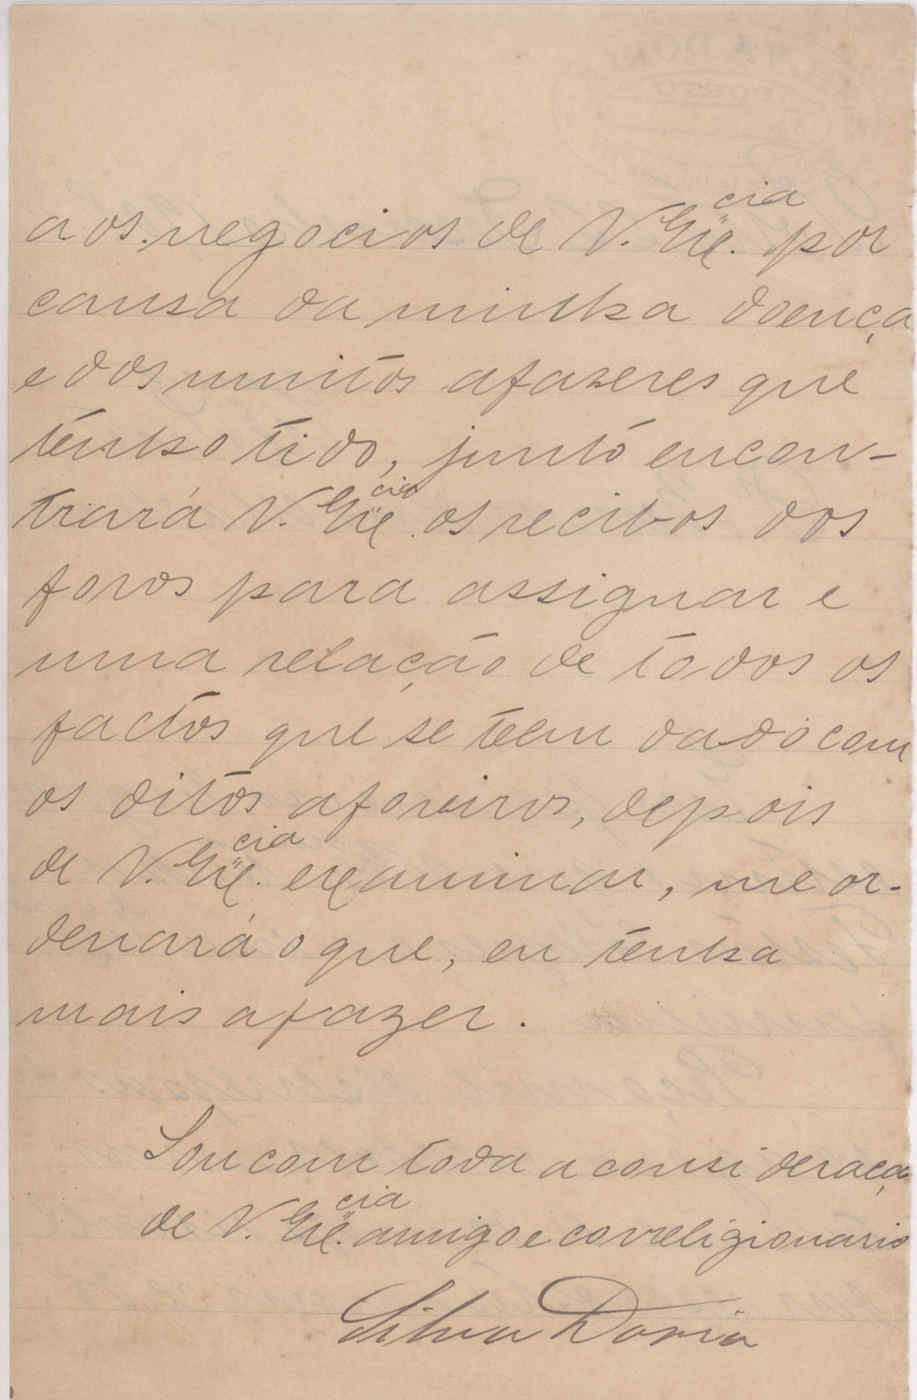 aos negocios de V. Ex.cia por
causa da minha doença
e dos muitos afazeres que
tenho tido, junto encon-
trará V. Ex.cia os recibos dos
foros para assignar e
uma relação de todos os
factos que se teem dado com
os ditos aforeiros, depois
de V. Ex.cia examinar, me or-
denará o que, eu tenha
mais a fazer.
Sou com toda a consideraçã
de V. Ex.cia amigo e correligionario
Silva Doria